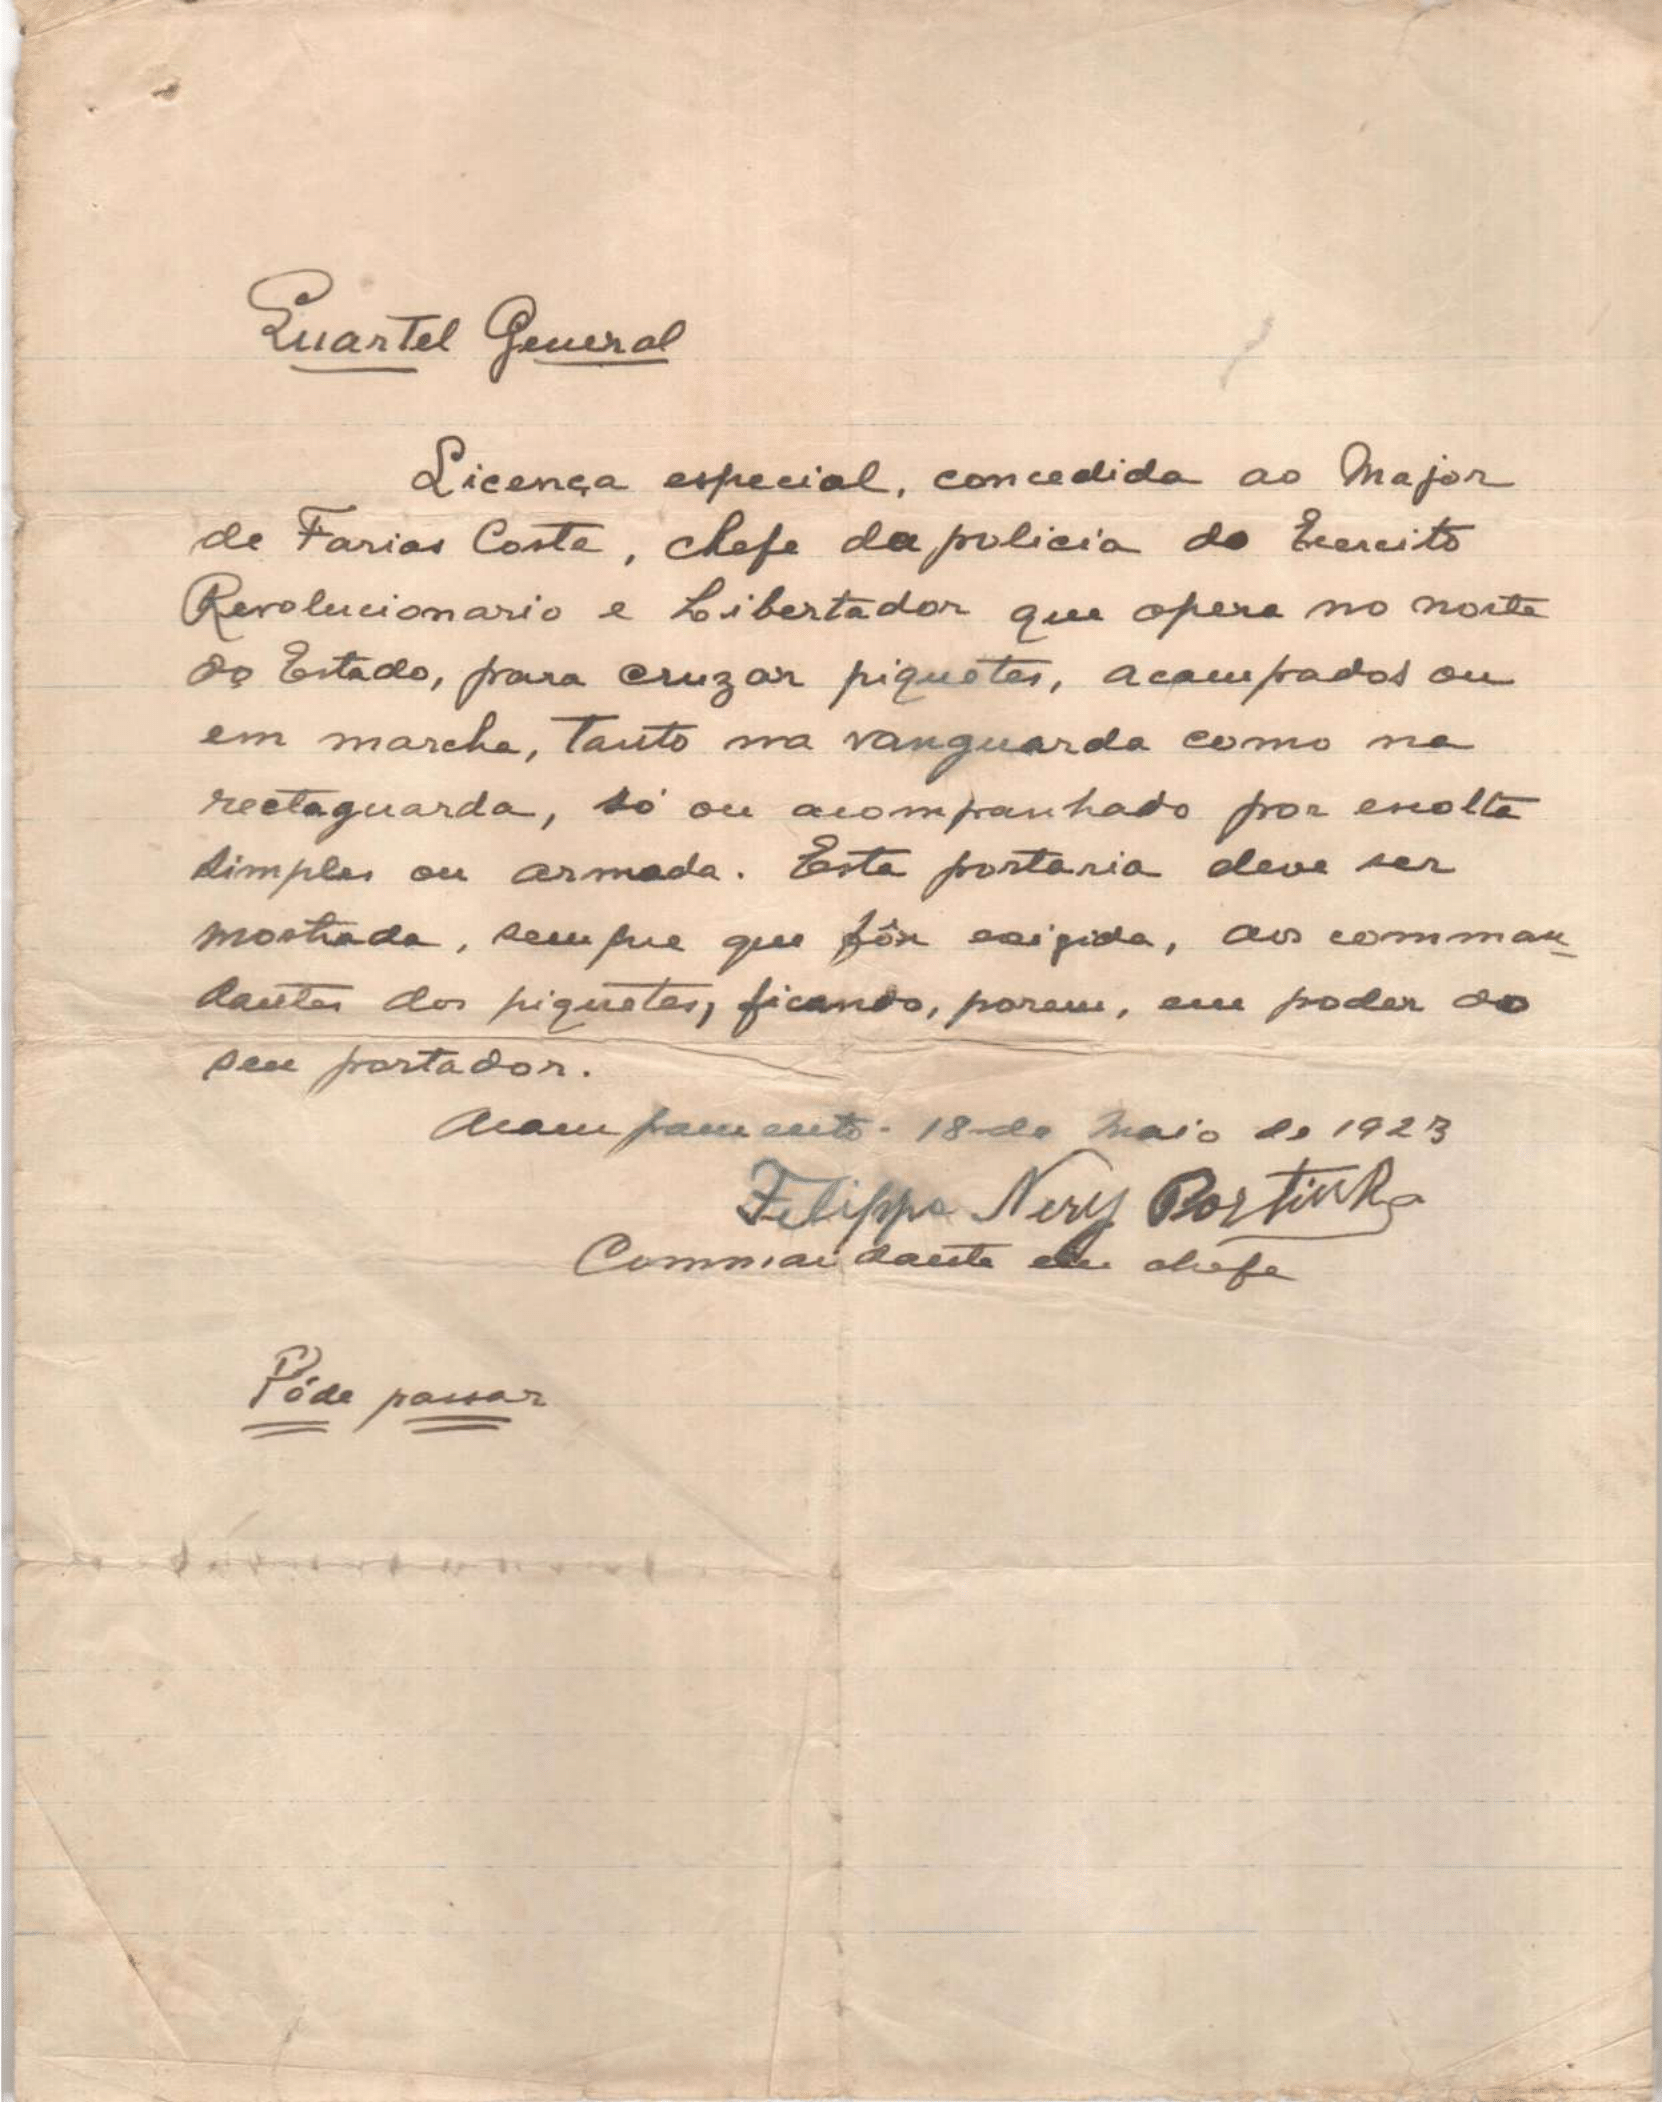 Quartel General
Licença especial, concedida ao Major
de Farias Costa, chefe da policia do Exercito
Revolucionario e Libertador que opera no norte
do Estado, para cruzar piquetes, acampados ou
em marcha, tanto na vanguarda como na
rectaguarda, só ou acompanhado por escolta
simples ou armada. Esta portaria deve ser
mostrada, sempre que fôr exigida, aos comman-
dantes dos piquetes, ficando, porem, em poder do
seu portador.
Acampamento - 18 de Maio de 1923
Felippe Nery Portinho
Commandante em chefe
Póde passar